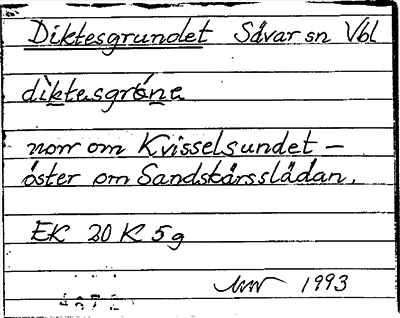 Diktesgrundet Sävar sn Vbl
diktesgróne
norr om Kvisselsundet –
öster om Sandskärsslädan.
EK 20 K 5g
1993